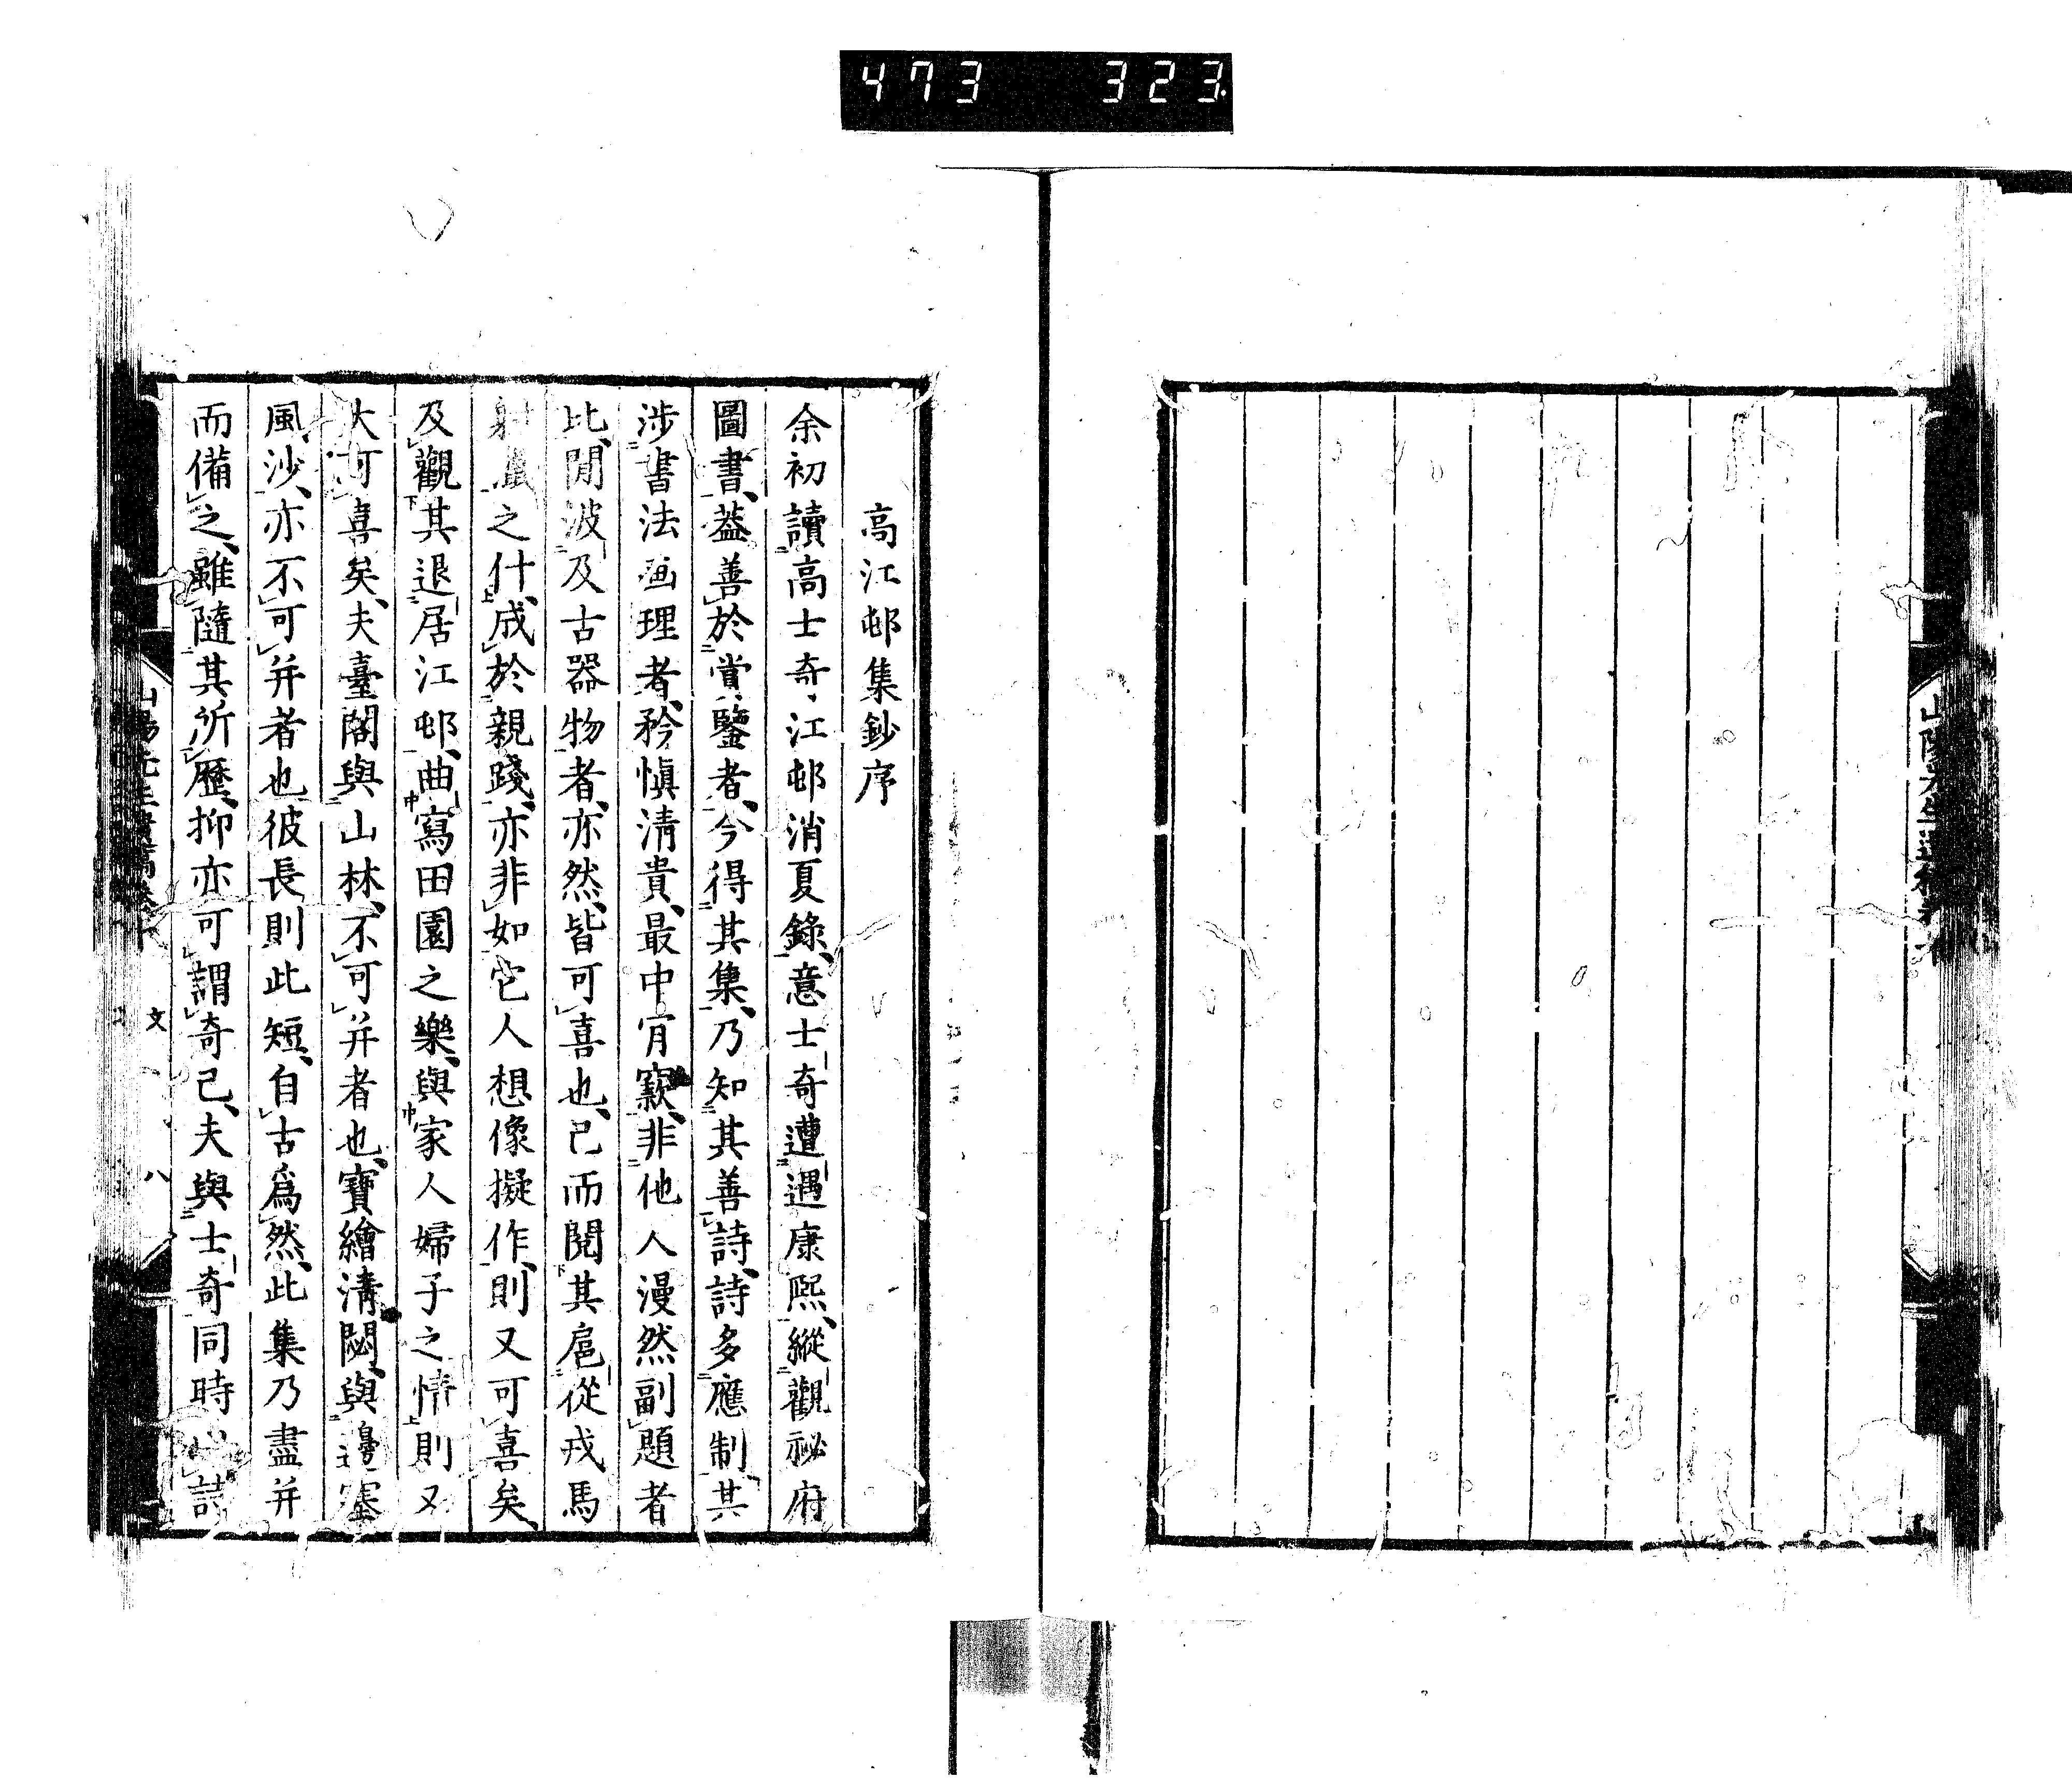 473 323.
高江邨集鈔序
余初讀高士奇江邨消夏錄、意士奇遭遇康熙、縱觀祕府
圖書、葢善於賞鑒者、今得其集、乃知其善詩、詩多應制、其
涉書法画理者、矜愼清貴、最中肎窾、非他人漫然副題者
比、閒波及古器物者、亦然、皆可喜也、已而閱其扈從戎馬
射之什、成於親踐、亦非如它人想像擬作、則又可喜矣、
及觀其退居江邨、曲寫田園之樂、與家人婦子之情、則又
大可喜矣、夫臺閣與山林、不可并者也、寶繪淸閟、與邊塞
風沙、亦不可并者也彼長則此短、自古爲然、此集乃盡并
而備之、雖隨其所歷、抑亦可謂奇已、夫與士奇同時以詩
山陽先生遺稿卷
文
八
山陽先生遺稿卷